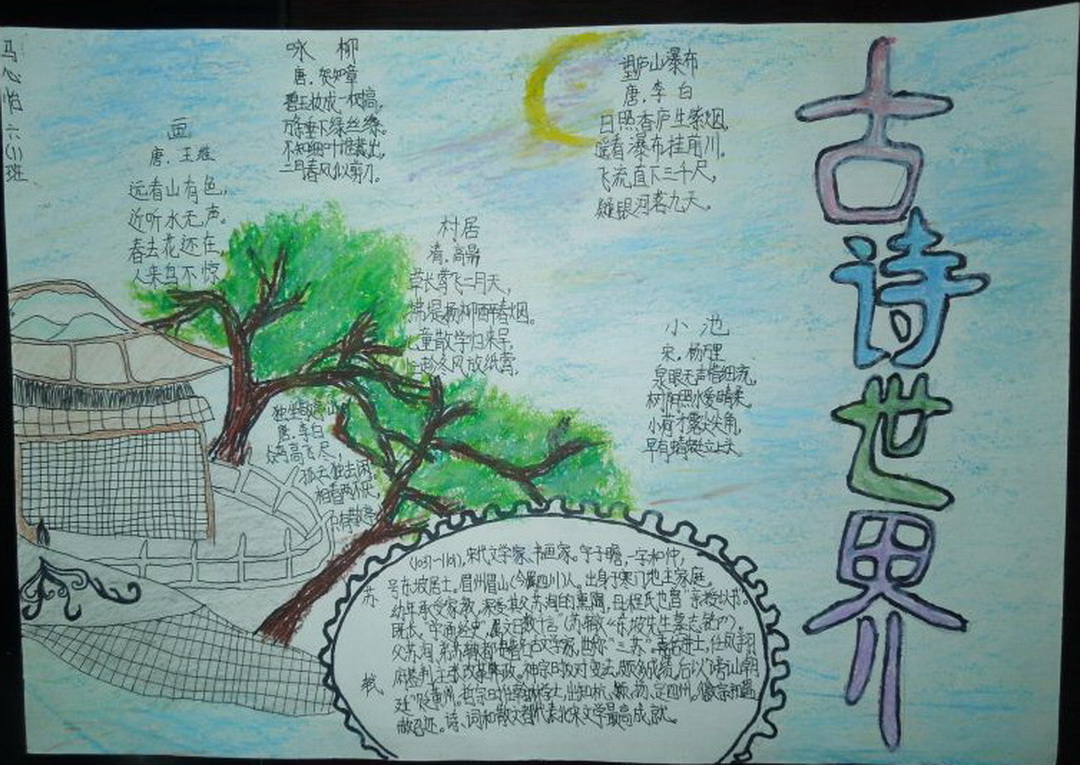 古诗世界
马心怡六(1)班
画
唐.王维
远看山有色,
近听水无声。
春去花还在,
人来鸟不惊
咏柳
唐.贺知章
碧玉妆成一树高,
万条垂下绿丝绦。
不知细叶谁裁出,
二月春风似剪刀。
望庐山瀑布
唐.李白
日照香庐生紫烟,
遥看瀑布挂前川。
飞流直下三千尺,
疑是银河落九天。
村居
清.高鼎
草长莺飞二月天,
拂堤杨柳醉春烟。
童散学归来早,
放纸鸢。
小池
宋.杨万里
泉眼无声惜细流,
树阴
小荷才露尖尖角,
早有蜻蜓立上头
独坐敬亭山
唐.李白
鸟高飞尽,
孤云独去闲
相看两不厌
苏轼
(1037-1101),宋代文学家、书画家。字子瞻,一字和仲,
号东坡居士。眉州眉山(今属四川)人。出身于寒门地主家庭,
幼年承受家教,深受其父苏洵的熏陶,母程氏也曾“亲授以书”。
既长,“学通经史,属文日数千言”(苏辙《东坡先生墓志铭》)。
父苏洵,弟苏辙都是著名古文学家,世称“三苏”。
神宗时反对变法,
哲宗时
诗、词和散文都代表北宋文学最高成就。